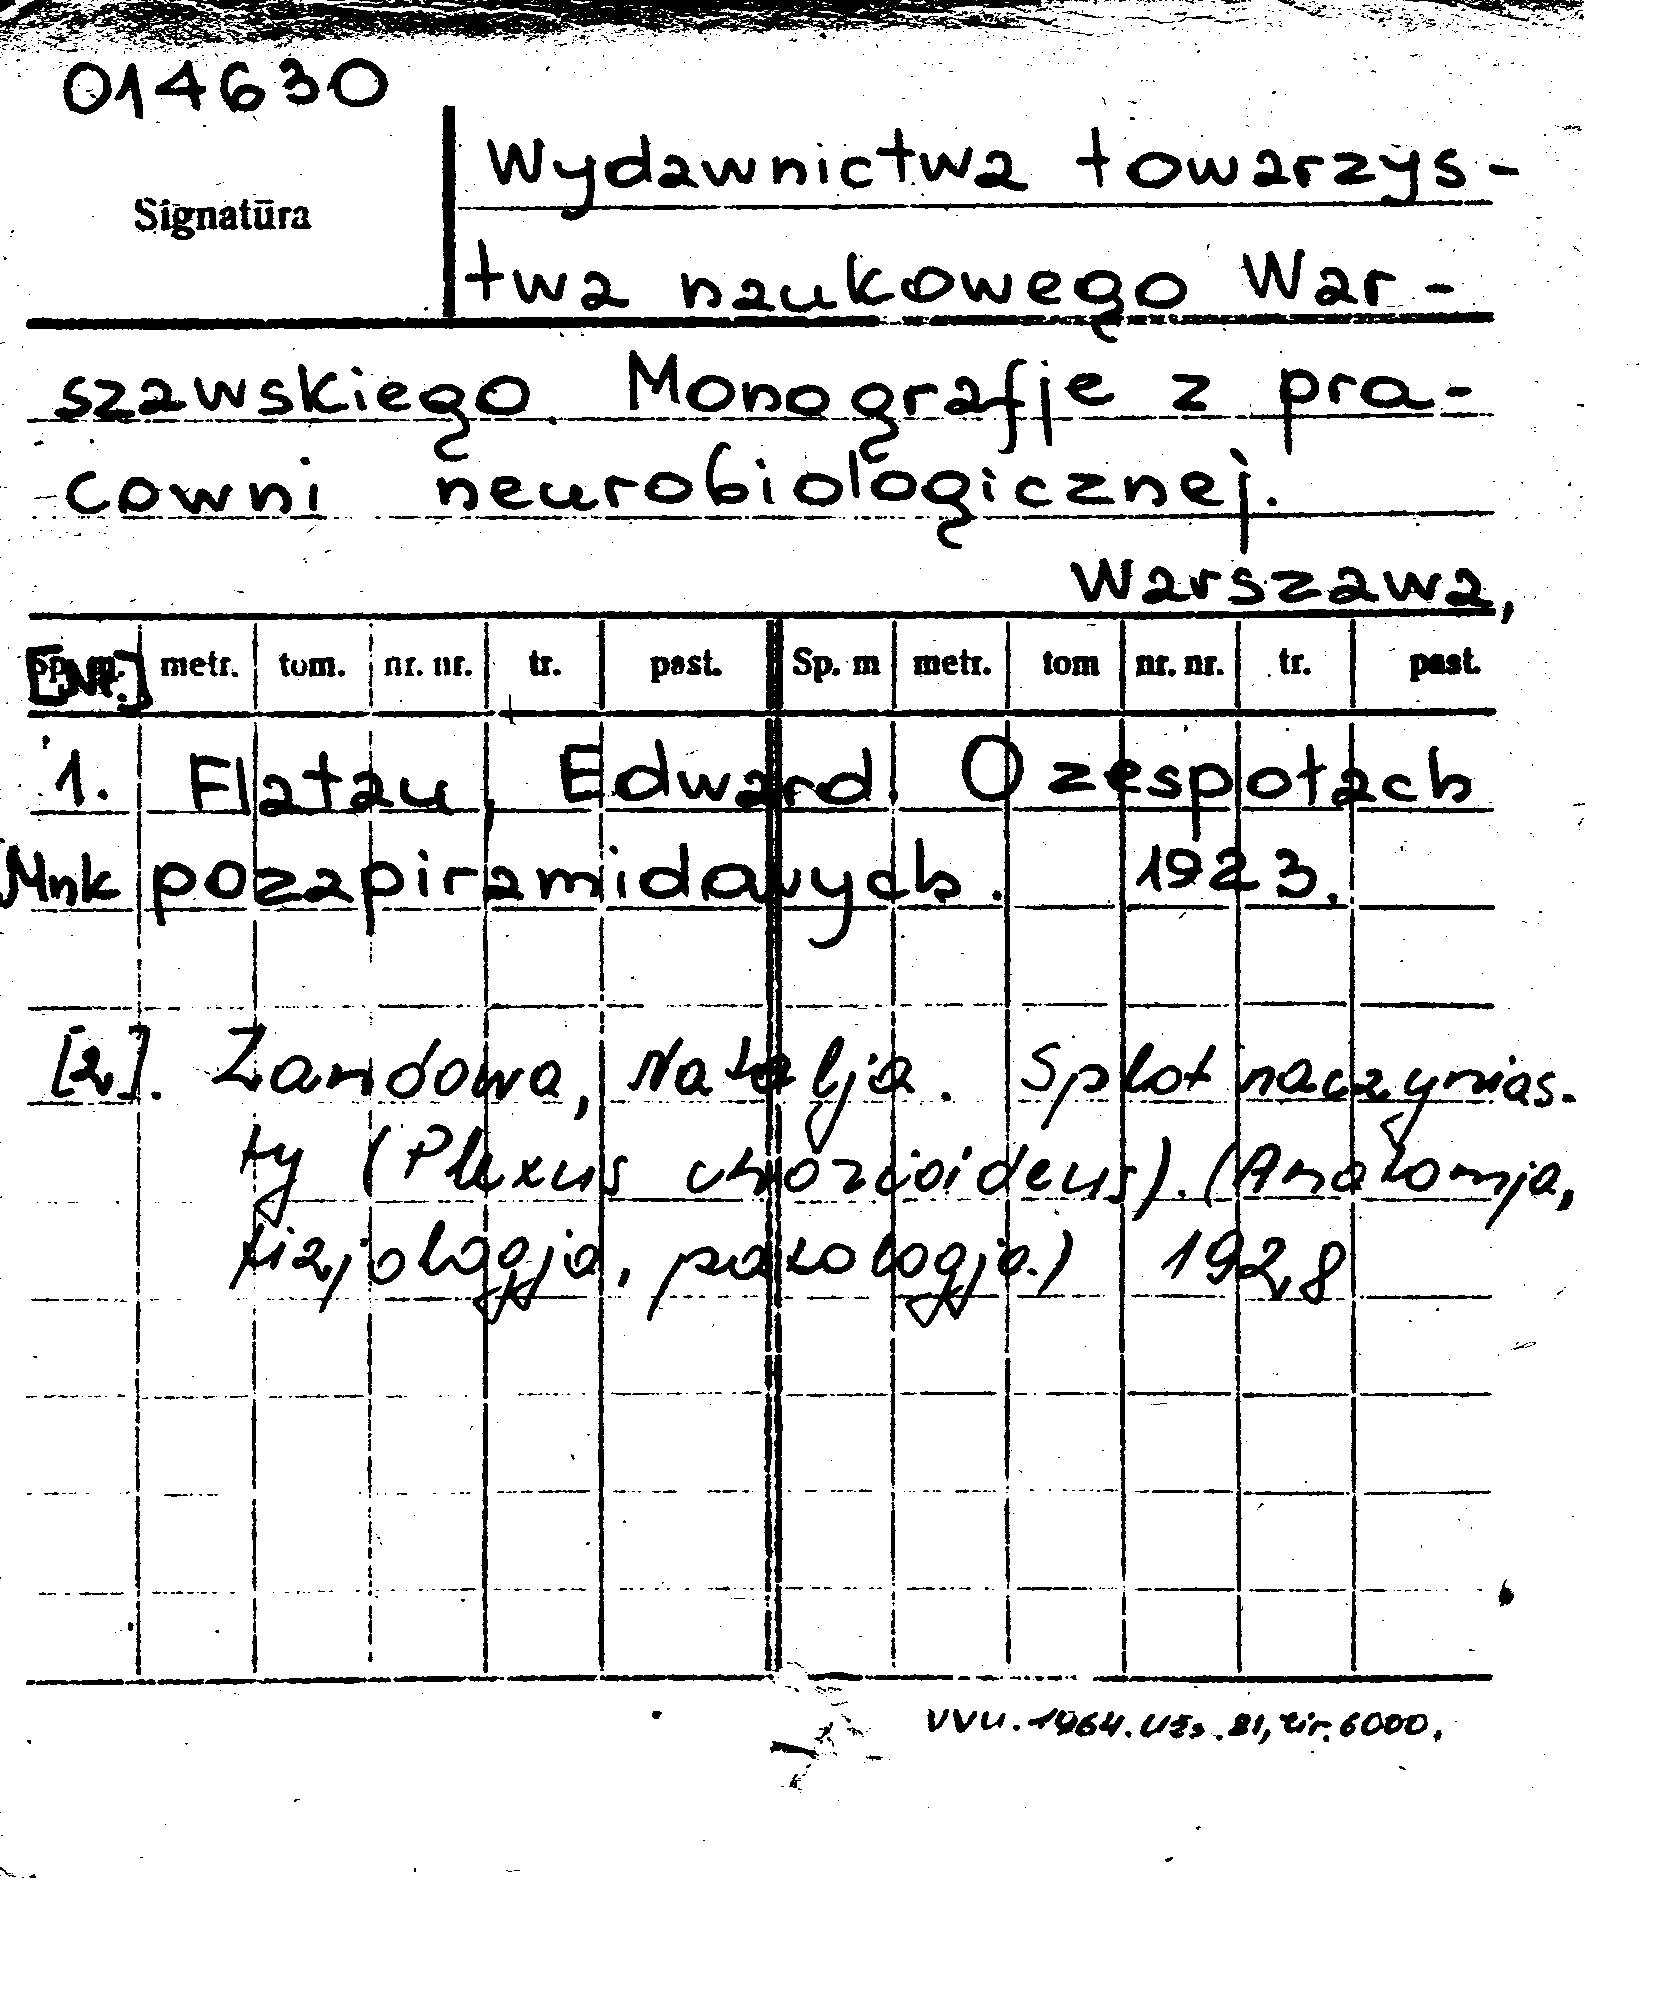 014630
Signatūra
Wydawnictwa towarzys-
twa naukowego War-
szawskiego. Monografje z pra-
cowni neurobiologicznej.
Warszawa,
[Nr.] metr. tom. nr. nr. tr. past. Sp. m metr. tom nr. nr. tr. past.
1. Flatau, Edward. O zespołach
Mnk pozapiramidowych. 1923.
[2]. Zandowa, Natalja. Splot naczynias-
ty (Plexus chorioideus). (Anatomja,
fizjologja, patologja.) 1928
VVU. 1964. Užs. 81, tir. 6000.